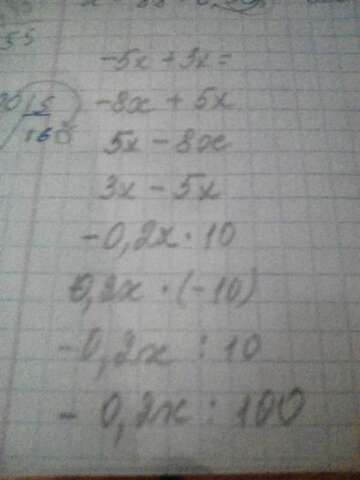 -5x + 3x =
-8x + 5x
5x - 8x
3x - 5x
-0,2x · 10
0,2x · (-10)
-0,2x : 10
- 0,2x : 100
55